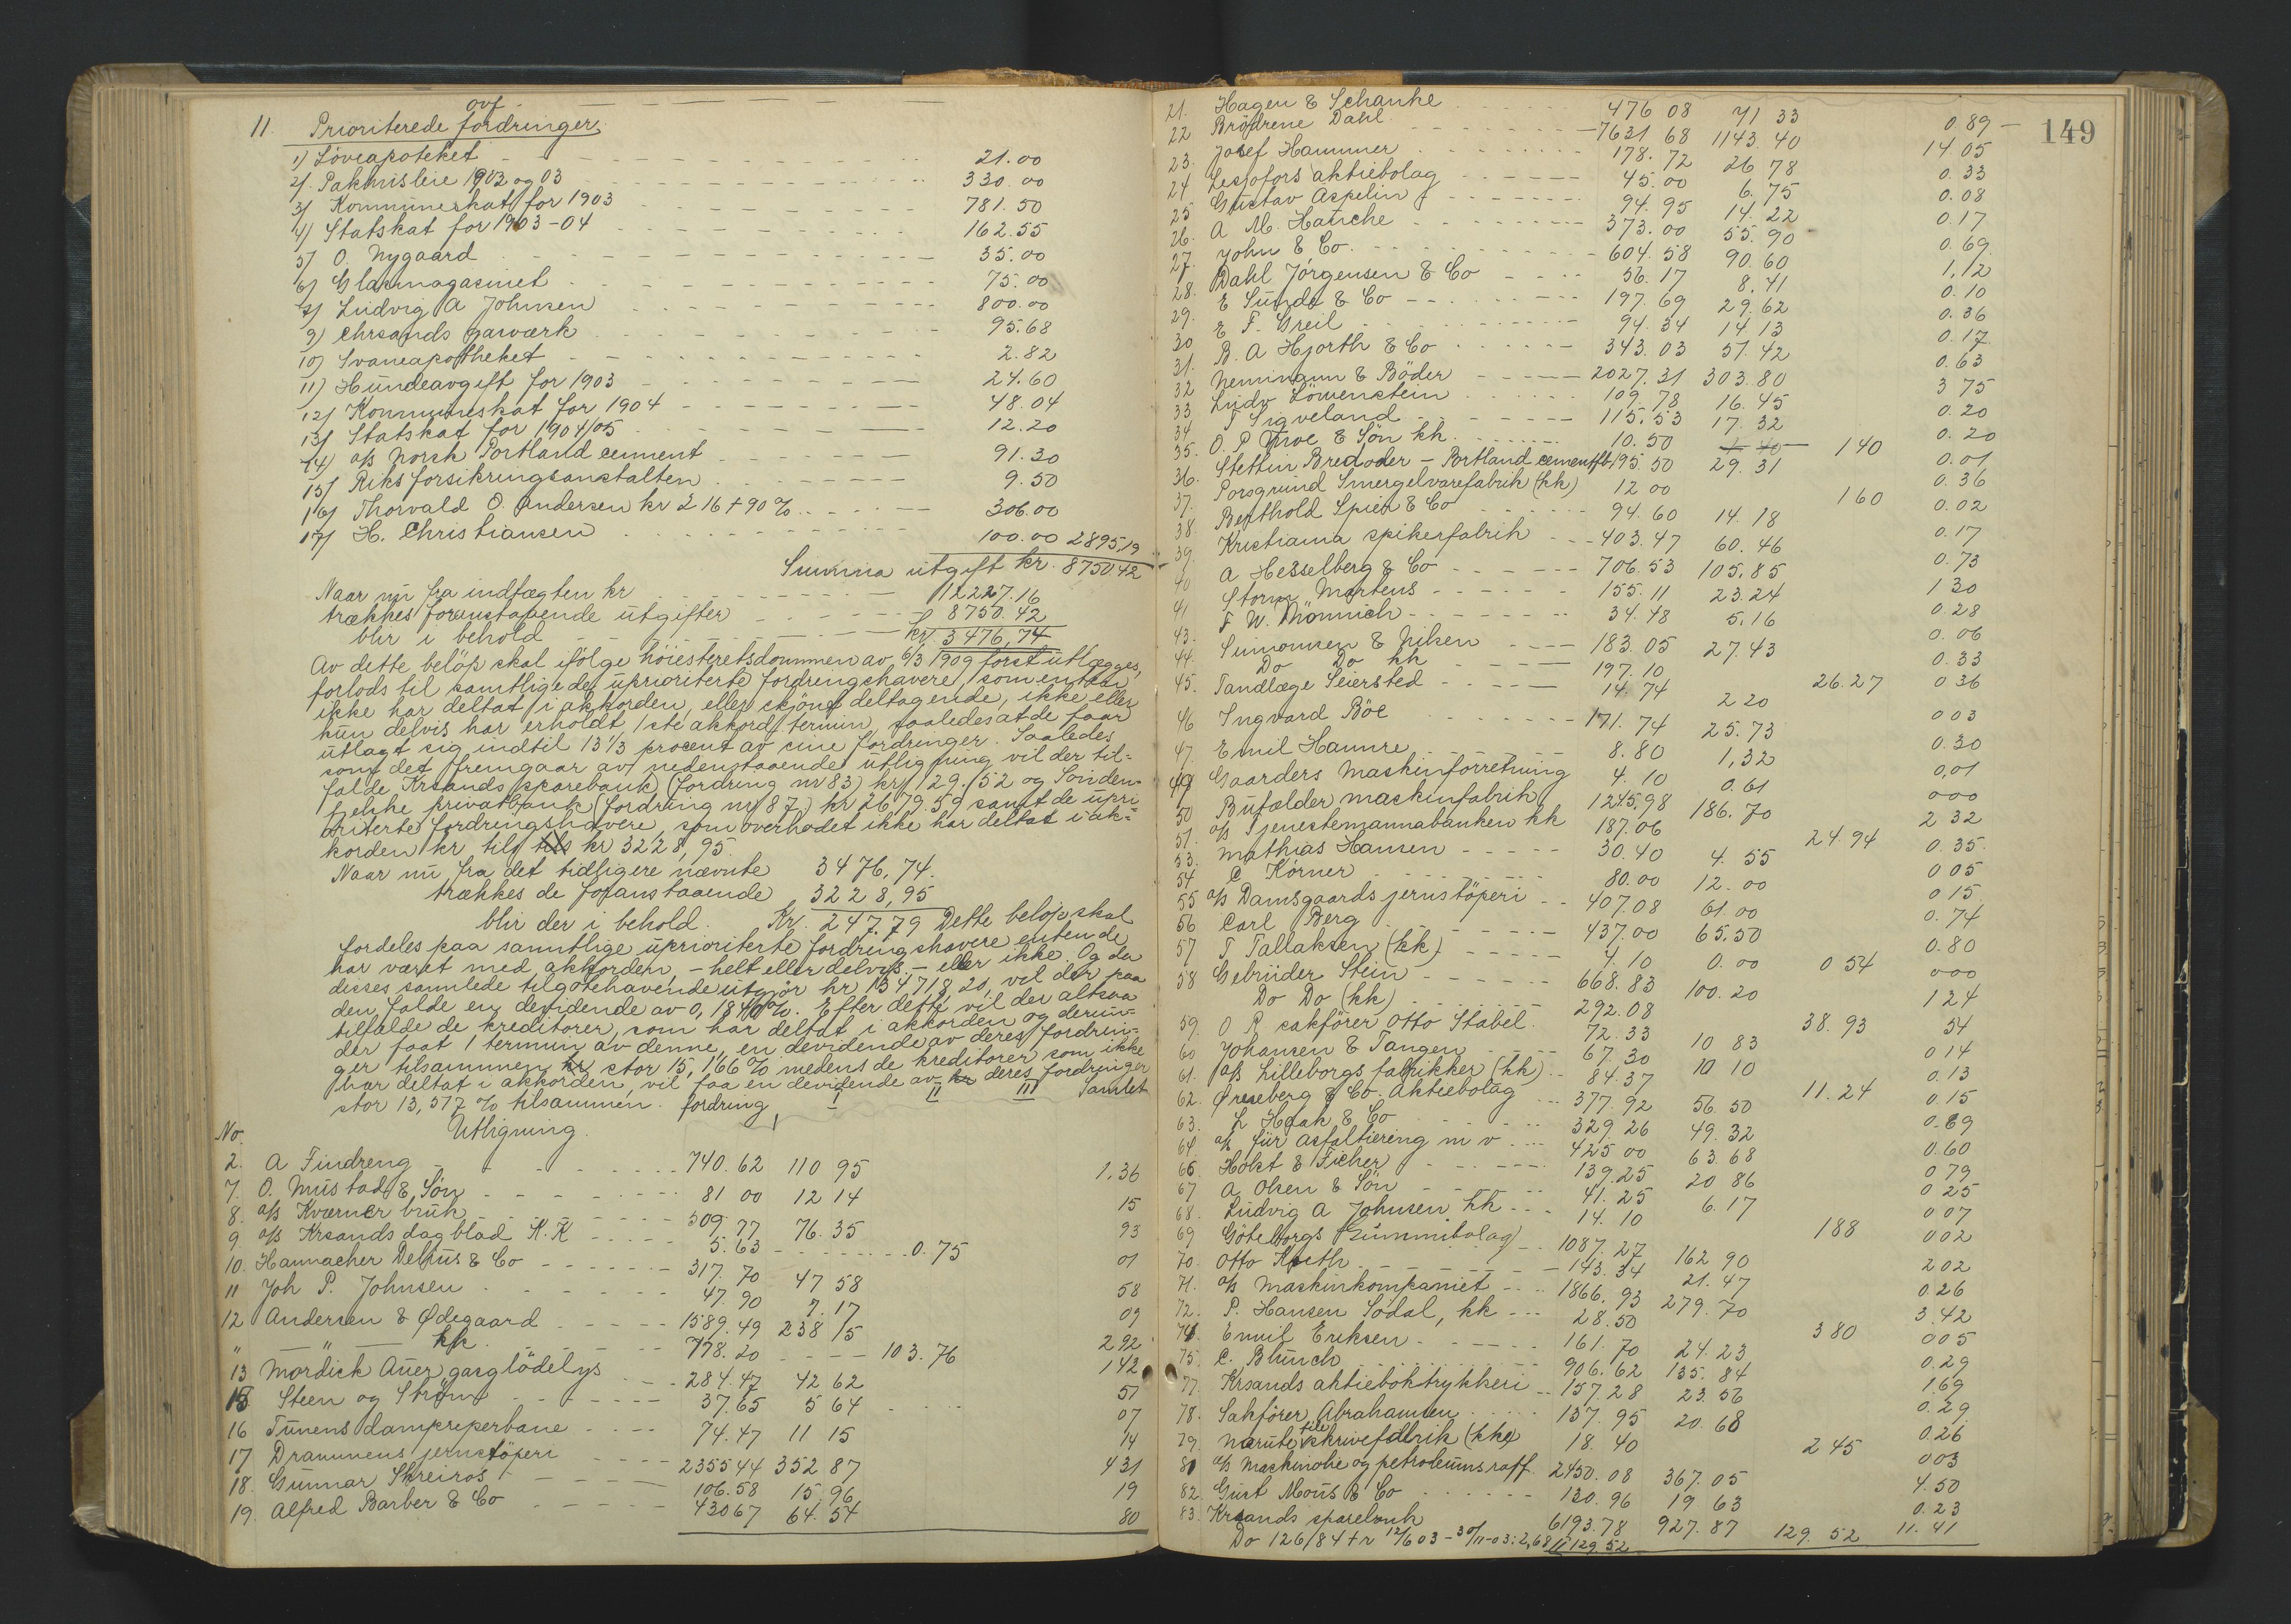 ovf
11. Prioriterede fordringer.
1) Löveapoteket 21.00
2) Pakhusleie 1902 og 03 330.00
3) Kommuneskat for 1903 781.50
4) Statskat for 1903-04 162.55
5) O. Nygaard 35.00
6) Glasmagasinet 75.00
7) Ludvig A Johnsen 800.00
9) Chrsands gasværk 95.68
10) Svaneapotheket 2.82
11) Hundeavgift for 1903 24.60
12) Kommuneskat for 1904 48.04
13) Statskat for 1904/05 12.20
14) a/s Norsk Portland cement 91.30
15) Riksforsikringsanstalten 9.50
16) Thorvald O. Andersen kr 216 + 90 % 306.00
17) H. Christiansen 100.00 2895,19
Summa utgift kr. 8750.42
Naar nu fra indtægten kr 12227.16
trækkes foranstaaende utgifter 8750.42
blir i behold kr. 3476,74
Av dette belöp skal ifölge höiesteretsdommen av 6/3 1909 först utlægges,
forlods til samtlige de upriorterte fordringshavere, som enten
ikke har deltat i akkorden, eller skjönt deltagende, ikke eller
kun delvis har erholdt 1ste akkordtermin, saaledes at de faar
utlagt sig indtil 13 1/3 procent av sine fordringer. Saaledes
som det fremgaar av nedenstaaende utligning vil der til-
falde Krsands sparebank (fordring nr 83) kr 129.52 og Sönden-
fjelske privatbank (fordring nr 87) kr 2679.59 samt de upri
oriterte fordringshavere, som overhodet ikke har deltat i ak-
korden kr tils kr 3228,95.
Naar nu fra det tidligere nævnte 3476,74.
trækkes de foranstaaende 3228,95
blir der i behold. Kr. 247.79 Dette belöp skal
fordeles paa samtlige uprioriterte fordringshavere enten de
har været med akkorden, - helt eller delvis, - eller ikke. Og da
disses samlede tilgodehavende utgjör kr 134718,20, vil der paa
den falde en devidende av 0,1840 %. Efter dette vil der altsaa
tilfalde de kreditorer, som har deltat i akkorden og derun-
der faat 1 termin av denne, en devidende av deres fordrin-
ger tilsammen stor 15,166 % medens de kreditorer som ikke
har deltat i akkorden, vil faa en devidende av deres fordringer
stor 13,517 % tilsammen. fordring I II III Samlet
No. Utligning.
2. A Findreng 740.62 110 95 1,36
7. O. Mustad & Sön 81 00 12 14 15
8. a/s Kværner bruk 509.77 76.35 93
9 a/s Krsands dagblad K.K 5.63 0.75 01
10. Hannacher Delius & Co 317.70 47 58 58
11 Joh P. Johnsen 47.90 7.17 09
12 Andersen & Ødegaard 1589.49 238 15 292
" " kk. 778.20 103.76 142
13 Nordisk Auer gasglödelys 284.47 42 62 51
15 Steen og Ström 37.65 5 64 07
16 Tunens dampreperbane 74.47 11 15 14
17 Drammens jernstöperi 2355 44 352 87 431
18. Gunnar Skreiros 106.58 15 96 19
19. Alfred Barber & Co 430 67 64.54 80
149
21. Hagen & Schanke 476 08 71 33 0.89
22 Brödrene Dahl 7631 68 1143.40 14 05
23. Josef Hammer 178.72 26 78 0.33
24 Lesjofors aktiebolag 45.00 6.75 0.08
25 Gustav Aspelin 94.95 14.22 0.17
26. A M. Hansche 373.00 55.90 0.69
27. John & Co. 604.58 90.60 1,12
28. Dahl Jörgensen & Co 56.17 8.41 0.10
29. E Sunde & Co 197.69 29.62 0.36
30 E F. Greil 94.34 14 13 0.17
31. B. A Hjorth & Co 343.03 51.42 0.63
32 Nemingun & Böder 2027.31 303.80 3 75
33 Ludv Löwenstein 109.78 16.45 0.20
34 T Sigveland 115.53 17.32 0.20
35. O. P Moe & Sön kk. 10.50 1 40 0.01
36. Stettin Bredoder - Portland cementfb 195.50 29.31 0.36
37. Porsgrund Smergelvarefabrik (kk) 12 00 160 0.02
38. Berthold Spier & Co 94.60 14.18 0.17
39. Kristiania spikerfabrik 403.47 60.46 0.73
40 A Hesselberg & Co 706.53 105.85 1 30
41 Storm Martens 155.11 23.24 0.28
F W. Mönnich 34.48 5.16 0.06
43. Simonsen & Nilsen 183.05 27.43 0.33
44. Do Do kk 197.10 26.27 0 36
45. Tandlæge Seiersted 14.74 2 20 0 03
46 Ingvard Böe 171.74 25.73 0.30
47. Emil Hannre 8.80 1,32 0,01
49 Gaarders Maskinforretning 4.10 0.61 000
50 Bufælder maskinfabrik 1245,98 186.70 2 32
51. a/s Tjenestemannabanken kk 187.06 24.94 0.35
53. Mathias Hansen 30.40 4.55 0 05
54 C. Körner 80.00 12.00 0 15
55 a/s Damsgaards jernstöperi 407.08 61.00 0.74
56 Carl Berg 437.00 65.50 0.80
57 T. Tallaksen (kk) 4.10 0.00 0 54 000
58 Gebrüder Stein 668.83 100.20 124
Do Do (kk) 292.08 38.93 54
59. O R sakförer Otto Stabel 72.33 10 83 0 14
60 Johansen & Tangen 67.30 10 10 0.13
61. a/s Lilleborgs fabrikker (kk) 84.37 11.24 0.15
62. Øreseberg & Co. Aktiebolag 377.92 56.50 0.69
63. L Haak & Co 329.26 49.32 0.60
64 a/s für Asfaltiering m v 425 00 63.68 0 79
66. Holst & Ficher 139.25 20 86 0 25
67 A Olsen & Sön 41.25 6.17 0 07
68. Ludvig A Johnsen kk 14.10 188 0 02
69 Göteborgs Gummibolag 1087.27 162 90 202
70. Otto Kjeth 143.34 21.47 0.26
71. a/s Maskinkompaniet 1866.93 279.70 3.42
72. P. Hansen Sodal, kk 28.50 380 0 05
74. Emil Eriksen 161.70 24.23 0.29
75. C. Blunch 906.62 135.84 1,69
77. Krsands aktieboktrykkeri 157.28 23.56 0.29
78. Sakförer Abrahamsen 137.95 20.68 0.26
79. skrivefabrik (kk) 18.40 2 45 0 03
81 a/s Maskinolie og petroleumsraff. 2450.08 367.05 4.50
82. Gust Mous & Co 130.96 19 63 0.23
83. Krsands sparebank 6193.78 927.87 129.52 11.41
Do 126/84 + r 12/6 03 - 30/11-03: 2,68 11 129.52